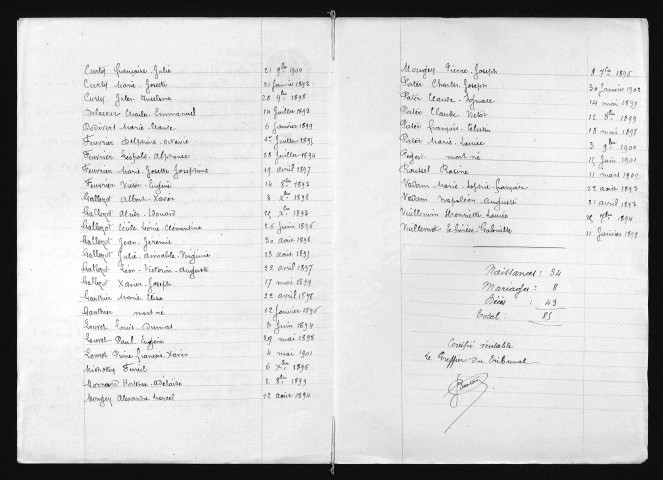 Curty Françoise Julie 21 9bre 1900
Curty Marie Josette 21 Janvier 1893
Curty Jules Anselme 28 9bre 1898
Delacour Charles Emmanuel 14 Juillet 1893
Dodivers Marie Claude 6 janvier 1899
Feuvrier Delphine Octavie 1er Juillet 1895
Feuvrier Léopold Alphonse 28 Juillet 1894
Feuvrier Marie Josette Josephine 19 avril 1897
Feuvrier Victor Eugène 14 8bre 1893
Gallezot Albert Xavier 8 Xbre 1898
Gallezot Alcide Edouard 29 Xbre 1893
Gallezot Cécile Léonie Clémentine 26 Juin 1896
Gallezot Jean Jérémie 30 août 1898
Gallezot Julie Annable Virginie 23 août 1895
Gallezot Léon Victorin Auguste 28 avril 1897
Gallezot Xavier Joseph 17 mai 1899
Gauthier Marie Elisa 22 avril 1898
Gauthier mort né 12 Janvier 1896
Louvet Louis 3 Juin 1894
Louvet Paul Eugène 29 mai 1898
Louvet Pierre François Xavier 4 mai 1901
6 Xbre 1896
Mornand Hortense Adelaïde 2 8bre 1899
Mougey Alexandre Marcel 12 août 1894
Mougey Pierre Joseph 8 7bre 1896
Patée Charles Joseph 30 Janvier 1902
Patée Claude Ignace 14 mai 1899
Patée Claude Victor 12 8bre 1899
Patée François Célestin 18 mai 1897
Patée Marie Louise 3 9bre 1900
mort né 15 Juin 1901
Roussel Rosine 11 mars 1900
Vadam Marie Sophie Françoise 22 août 1893
Vadam Napoléon Auguste 21 avril 1893
Vuillemin Henriette Louise 25 7bre 1894
Vuillemot Gabrielle 11 Janvier 1899
Naissances : 34
Mariages : 8
Décès : 43
Total : 85
Certifié véritable
Le Greffier du tribunal